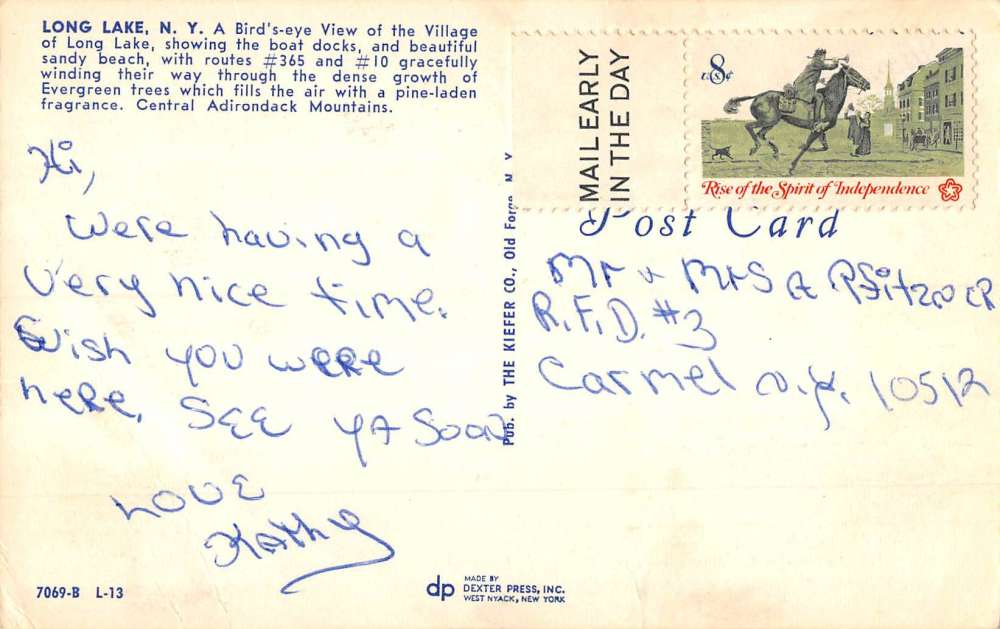 LONG LAKE, N. Y. A Bird's-eye View of the Village
of Long Lake, showing the boat docks, and beautiful
sandy beach, with routes #365 and #10 gracefully
winding their way through the dense growth of
Evergreen trees which fills the air with a pine-laden
fragrance. Central Adirondack Mountains.
Hi,
Were having a
very nice time.
Wish you were
here. SEE YA Soon
LOVE
Kathy
7069-B L-13
Pub. by THE KIEFER CO., Old Forge, N. Y.
dp
MADE BY
DEXTER PRESS, INC.
WEST NYACK, NEW YORK
MAIL EARLY
IN THE DAY
8
U.S. ¢
Rise of the Spirit of Independence
Post Card
Mr & Mrs A
R.F.D. #3
Carmel N.Y. 10512